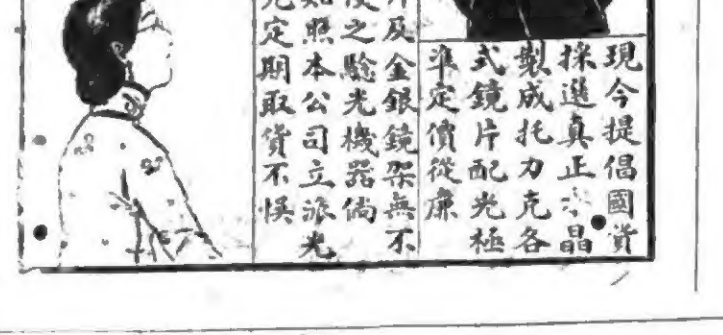 現今提倡國貨
採選真正水晶
製成托力克各
式鏡片配光極
準定價從廉
片及金銀鏡架無不
之驗光機器倘
如照本公司立派光
定期取貨不悞